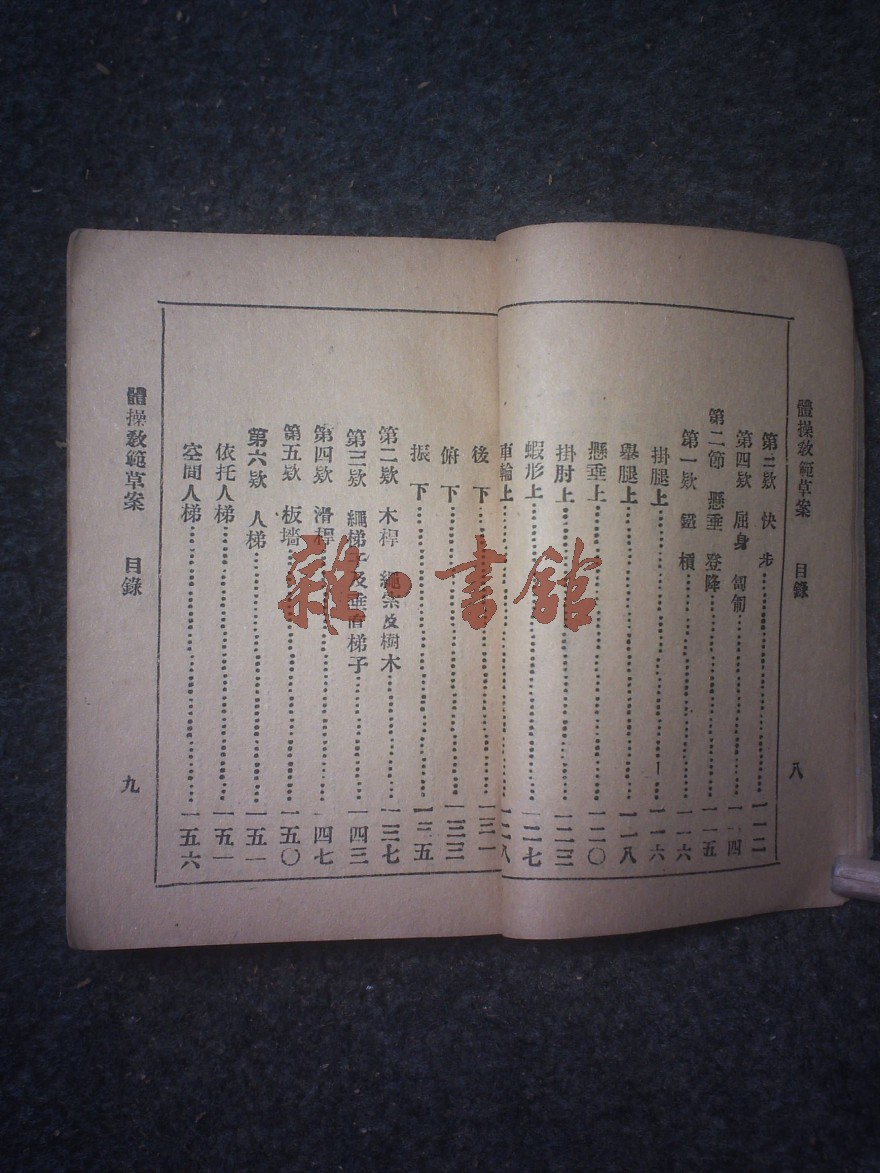 體操敎範草案 目錄 八
第三欵 快步 一一二
第四欵 屈身 匐匍 一一四
第二節 懸垂 登降 一一五
第一欵 鐵槓 一一六
掛腿上 一一六
舉腿上 一一八
懸垂上 一二〇
掛肘上 一二三
蝦形上 一二七
車輪上 一二八
後下 一三一
俯下 一三三
振下 一三五
第二欵 木桿 繩索及樹木 一三七
第三欵 繩梯子及垂直梯子 一四三
第四欵 滑桿 一四七
第五欵 板墻 一五〇
第六欵 人梯 一五一
依托人梯 一五一
空間人梯 一五六
體操敎範草案 目錄 九
雜·書館